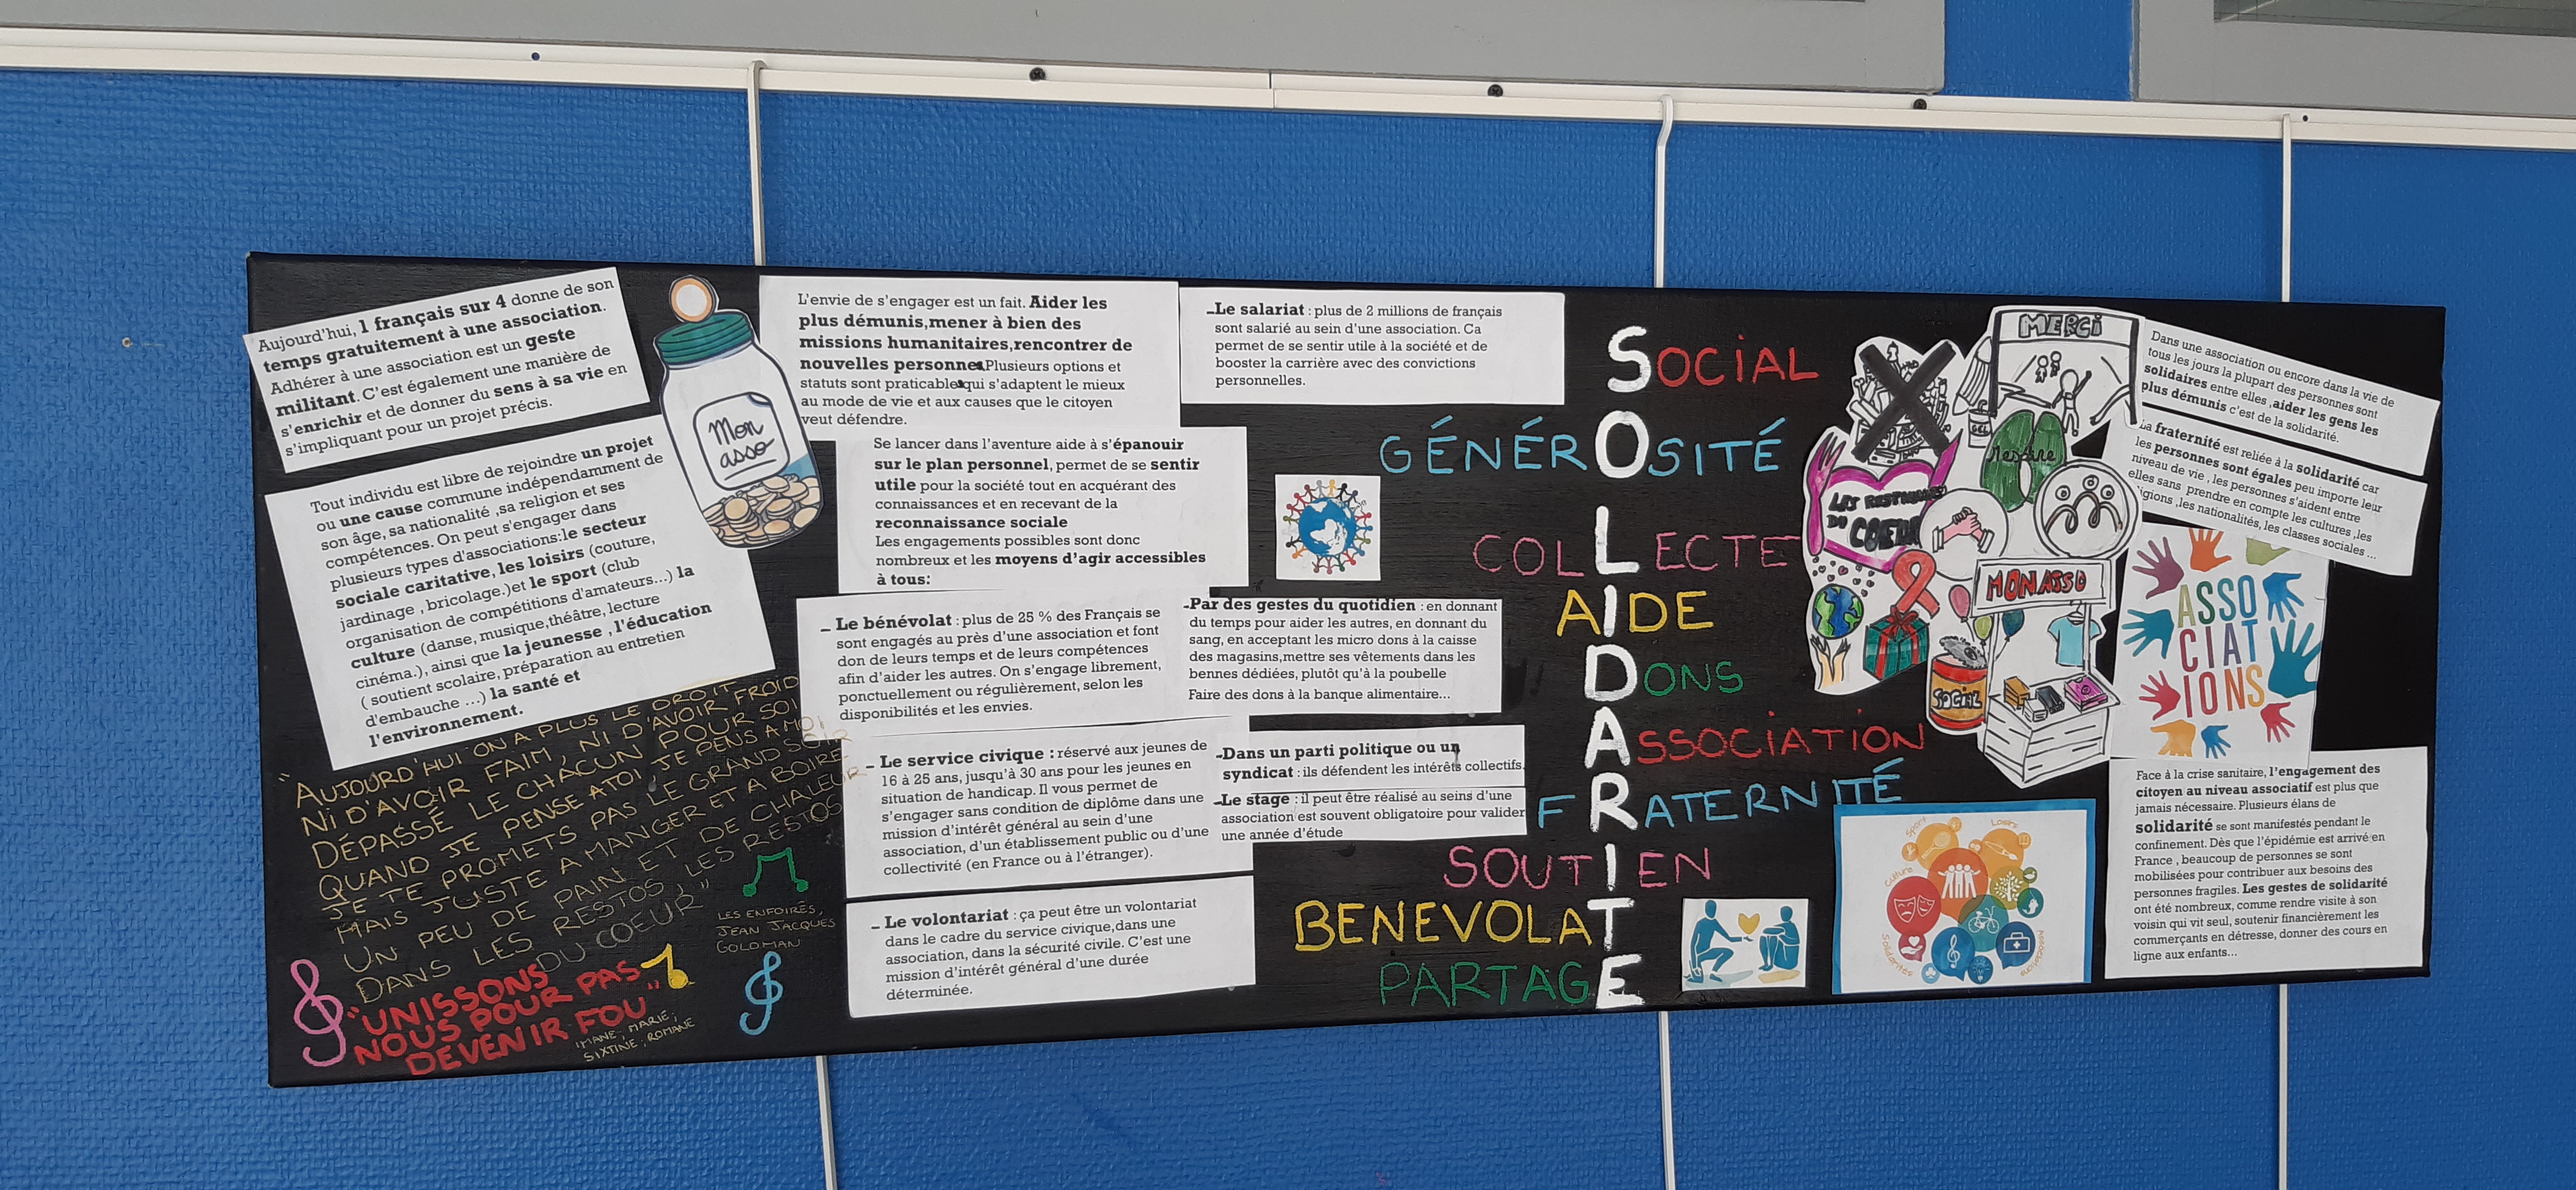 Aujourd'hui, 1 français sur 4 donne de son
temps gratuitement à une association.
Adhérer à une association est un geste
militant. C'est également une manière de
s'enrichir et de donner du sens à sa vie en
s'impliquant pour un projet précis.
Tout individu est libre de rejoindre un projet
ou une cause commune indépendamment de
son âge, sa nationalité ,sa religion et ses
compétences. On peut s'engager dans
plusieurs types d'associations:le secteur
sociale caritative, les loisirs (couture,
jardinage , bricolage.)et le sport (club
organisation de compétitions d'amateurs...) la
culture (danse, musique,théâtre, lecture
cinéma.), ainsi que la jeunesse , l'éducation
( soutient scolaire, préparation au entretien
d'embauche ...) la santé et
l'environnement.
Mon
asso
"AUJOURD'HUI ON A PLUS LE DROIT
NI D'AVOIR FAIM, NI D'AVOIR FROID
DÉPASSÉ LE CHACUN POUR SOI
QUAND JE PENSE A TOI JE PENS A MOI
JE TE PROMETS PAS LE GRAND SOIR
MAIS JUSTE A MANGER ET A BOIRE
UN PEU DE PAIN ET DE CHALEUR
DANS LES RESTOS, LES RESTOS
DU COEUR"
LES ENFOIRÉS,
JEAN JACQUES
GOLDMAN
"UNISSONS
NOUS POUR PAS
DEVENIR FOU"
IMANE, MARIE,
SIXTINE, ROMANE
L'envie de s'engager est un fait. Aider les
plus démunis,mener à bien des
missions humanitaires,rencontrer de
nouvelles personnes Plusieurs options et
statuts sont praticable qui s'adaptent le mieux
au mode de vie et aux causes que le citoyen
veut défendre.
Se lancer dans l'aventure aide à s'épanouir
sur le plan personnel, permet de se sentir
utile pour la société tout en acquérant des
connaissances et en recevant de la
reconnaissance sociale
Les engagements possibles sont donc
nombreux et les moyens d'agir accessibles
à tous:
– Le bénévolat : plus de 25 % des Français se
sont engagés au près d'une association et font
don de leurs temps et de leurs compétences
afin d'aider les autres. On s'engage librement,
ponctuellement ou régulièrement, selon les
disponibilités et les envies.
– Le service civique : réservé aux jeunes de
16 à 25 ans, jusqu'à 30 ans pour les jeunes en
situation de handicap. Il vous permet de
s'engager sans condition de diplôme dans une
mission d'intérêt général au sein d'une
association, d'un établissement public ou d'une
collectivité (en France ou à l'étranger).
– Le volontariat : ça peut être un volontariat
dans le cadre du service civique,dans une
association, dans la sécurité civile. C'est une
mission d'intérêt général d'une durée
déterminée.
–Le salariat : plus de 2 millions de français
sont salarié au sein d'une association. Ca
permet de se sentir utile à la société et de
booster la carrière avec des convictions
personnelles.
-Par des gestes du quotidien : en donnant
du temps pour aider les autres, en donnant du
sang, en acceptant les micro dons à la caisse
des magasins,mettre ses vêtements dans les
bennes dédiées, plutôt qu'à la poubelle
Faire des dons à la banque alimentaire...
-Dans un parti politique ou un
syndicat : ils défendent les intérêts collectifs.
-Le stage : il peut être réalisé au seins d'une
association est souvent obligatoire pour valider
une année d'étude
SOCIAL
GÉNÉROSITÉ
COLLECTE
AIDE
DONS
ASSOCIATION
FRATERNITÉ
SOUTIEN
BENEVOLAT
PARTAGE
MERCI
LES RESTAURANTS
DU COEUR
MON ASSO
SOCIAL
ASSO
CIAT
IONS
Sport
Loisirs
Culture
Solidarités
Dans une association ou encore dans la vie de
tous les jours la plupart des personnes sont
solidaires entre elles ,aider les gens les
plus démunis c'est de la solidarité.
La fraternité est reliée à la solidarité car
les personnes sont égales peu importe leur
niveau de vie , les personnes s'aident entre
elles sans prendre en compte les cultures ,les
religions ,les nationalités, les classes sociales ...
Face à la crise sanitaire, l'engagement des
citoyen au niveau associatif est plus que
jamais nécessaire. Plusieurs élans de
solidarité se sont manifestés pendant le
confinement. Dès que l'épidémie est arrivé en
France , beaucoup de personnes se sont
mobilisées pour contribuer aux besoins des
personnes fragiles. Les gestes de solidarité
ont été nombreux, comme rendre visite à son
voisin qui vit seul, soutenir financièrement les
commerçants en détresse, donner des cours en
ligne aux enfants...